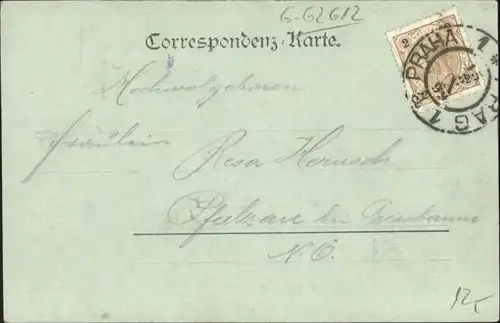 6-62612
Correspondenz-Karte.
2
PRAHA 1
PRAG 1
Hochwolgeboren
Fräulein
Resa Hornisch
Pfalzau bei Pressbaum
N. Ö.
12,-